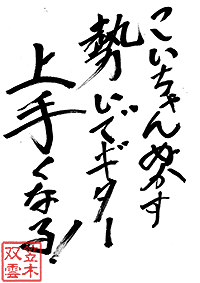 こいちゃんぬかす
勢いでギター
上手くなる!
笠木
双雲